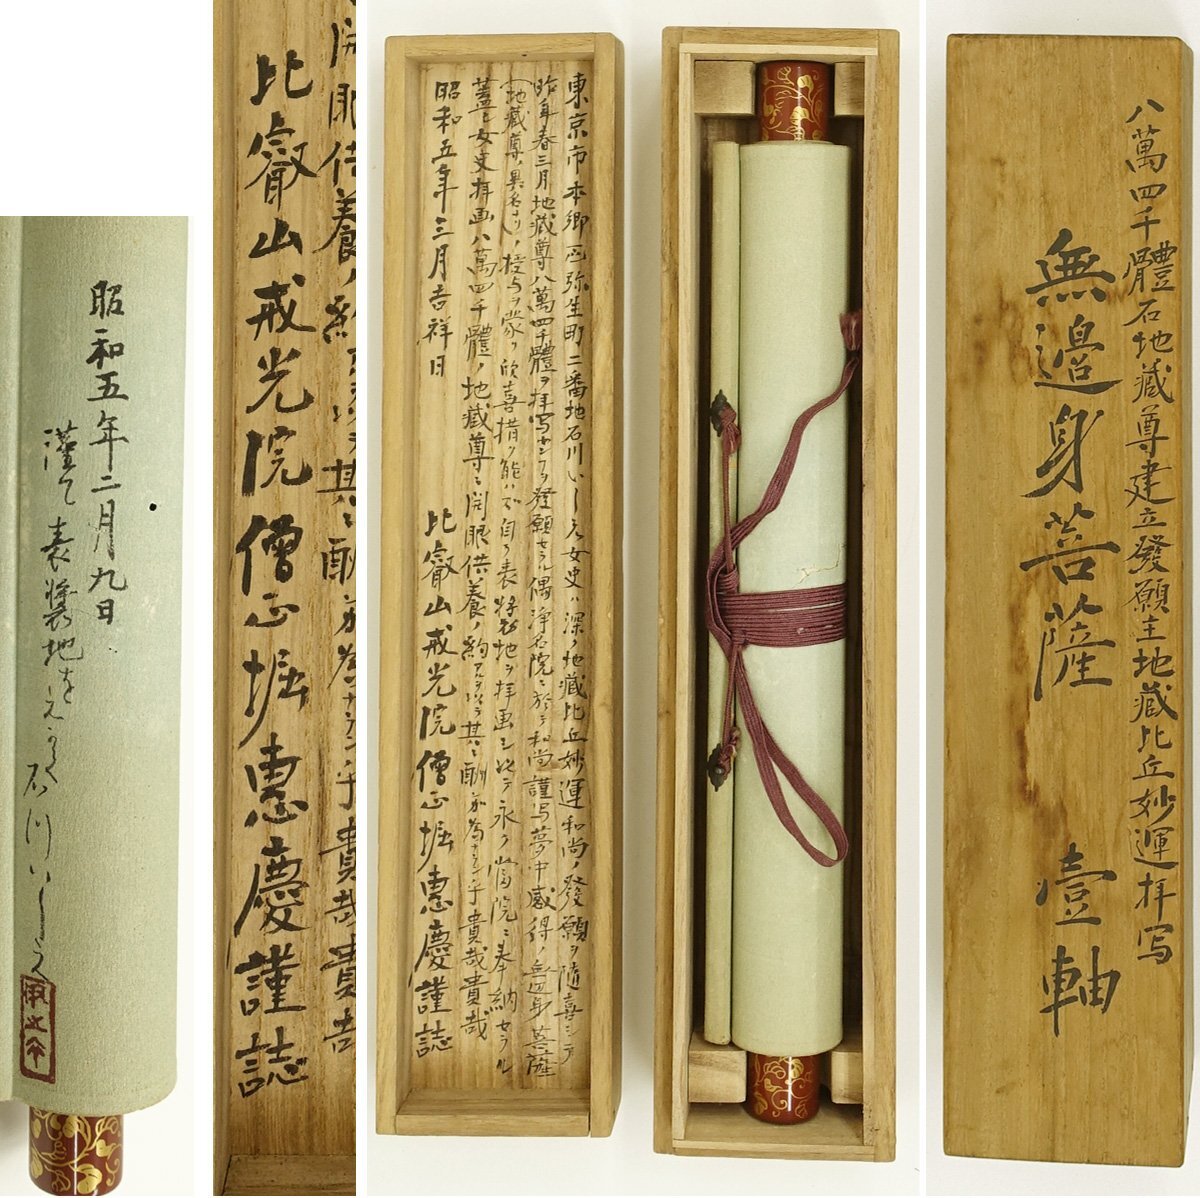 八萬四千體石地蔵尊建立發願主地蔵比丘妙運拝写
無邊身菩薩 壹軸
東京市本郷区弥生町二番地石川いし女史ハ深ク地蔵比丘妙運和尚ノ發願ヲ隨喜シテ
昨年春三月地蔵尊八萬四千體ヲ拝写センヿヲ發願セラル偶浄名院ニ於テ和尚謹写夢中感得ノ無辺身菩薩
(地蔵尊ノ異名ナリ)ノ授与ヲ蒙リ欣喜措ク能ハズ自ラ表装地ヲ拝画シ此ヲ永ク當院ニ奉納セラル
蓋シ女史拝画八萬四千體ノ地蔵尊ニ開眼供養ノ約アルヲ以テ其ニ酬為ナラン乎貴哉貴哉
昭和五年三月吉祥日
比叡山戒光院僧正堀惠慶謹誌
開眼供養ノ約アルヲ以テ其ニ酬為ナラン乎貴哉貴哉
比叡山戒光院僧正堀惠慶謹誌
昭和五年二月九日
謹て表装地をゑかく 石川いし